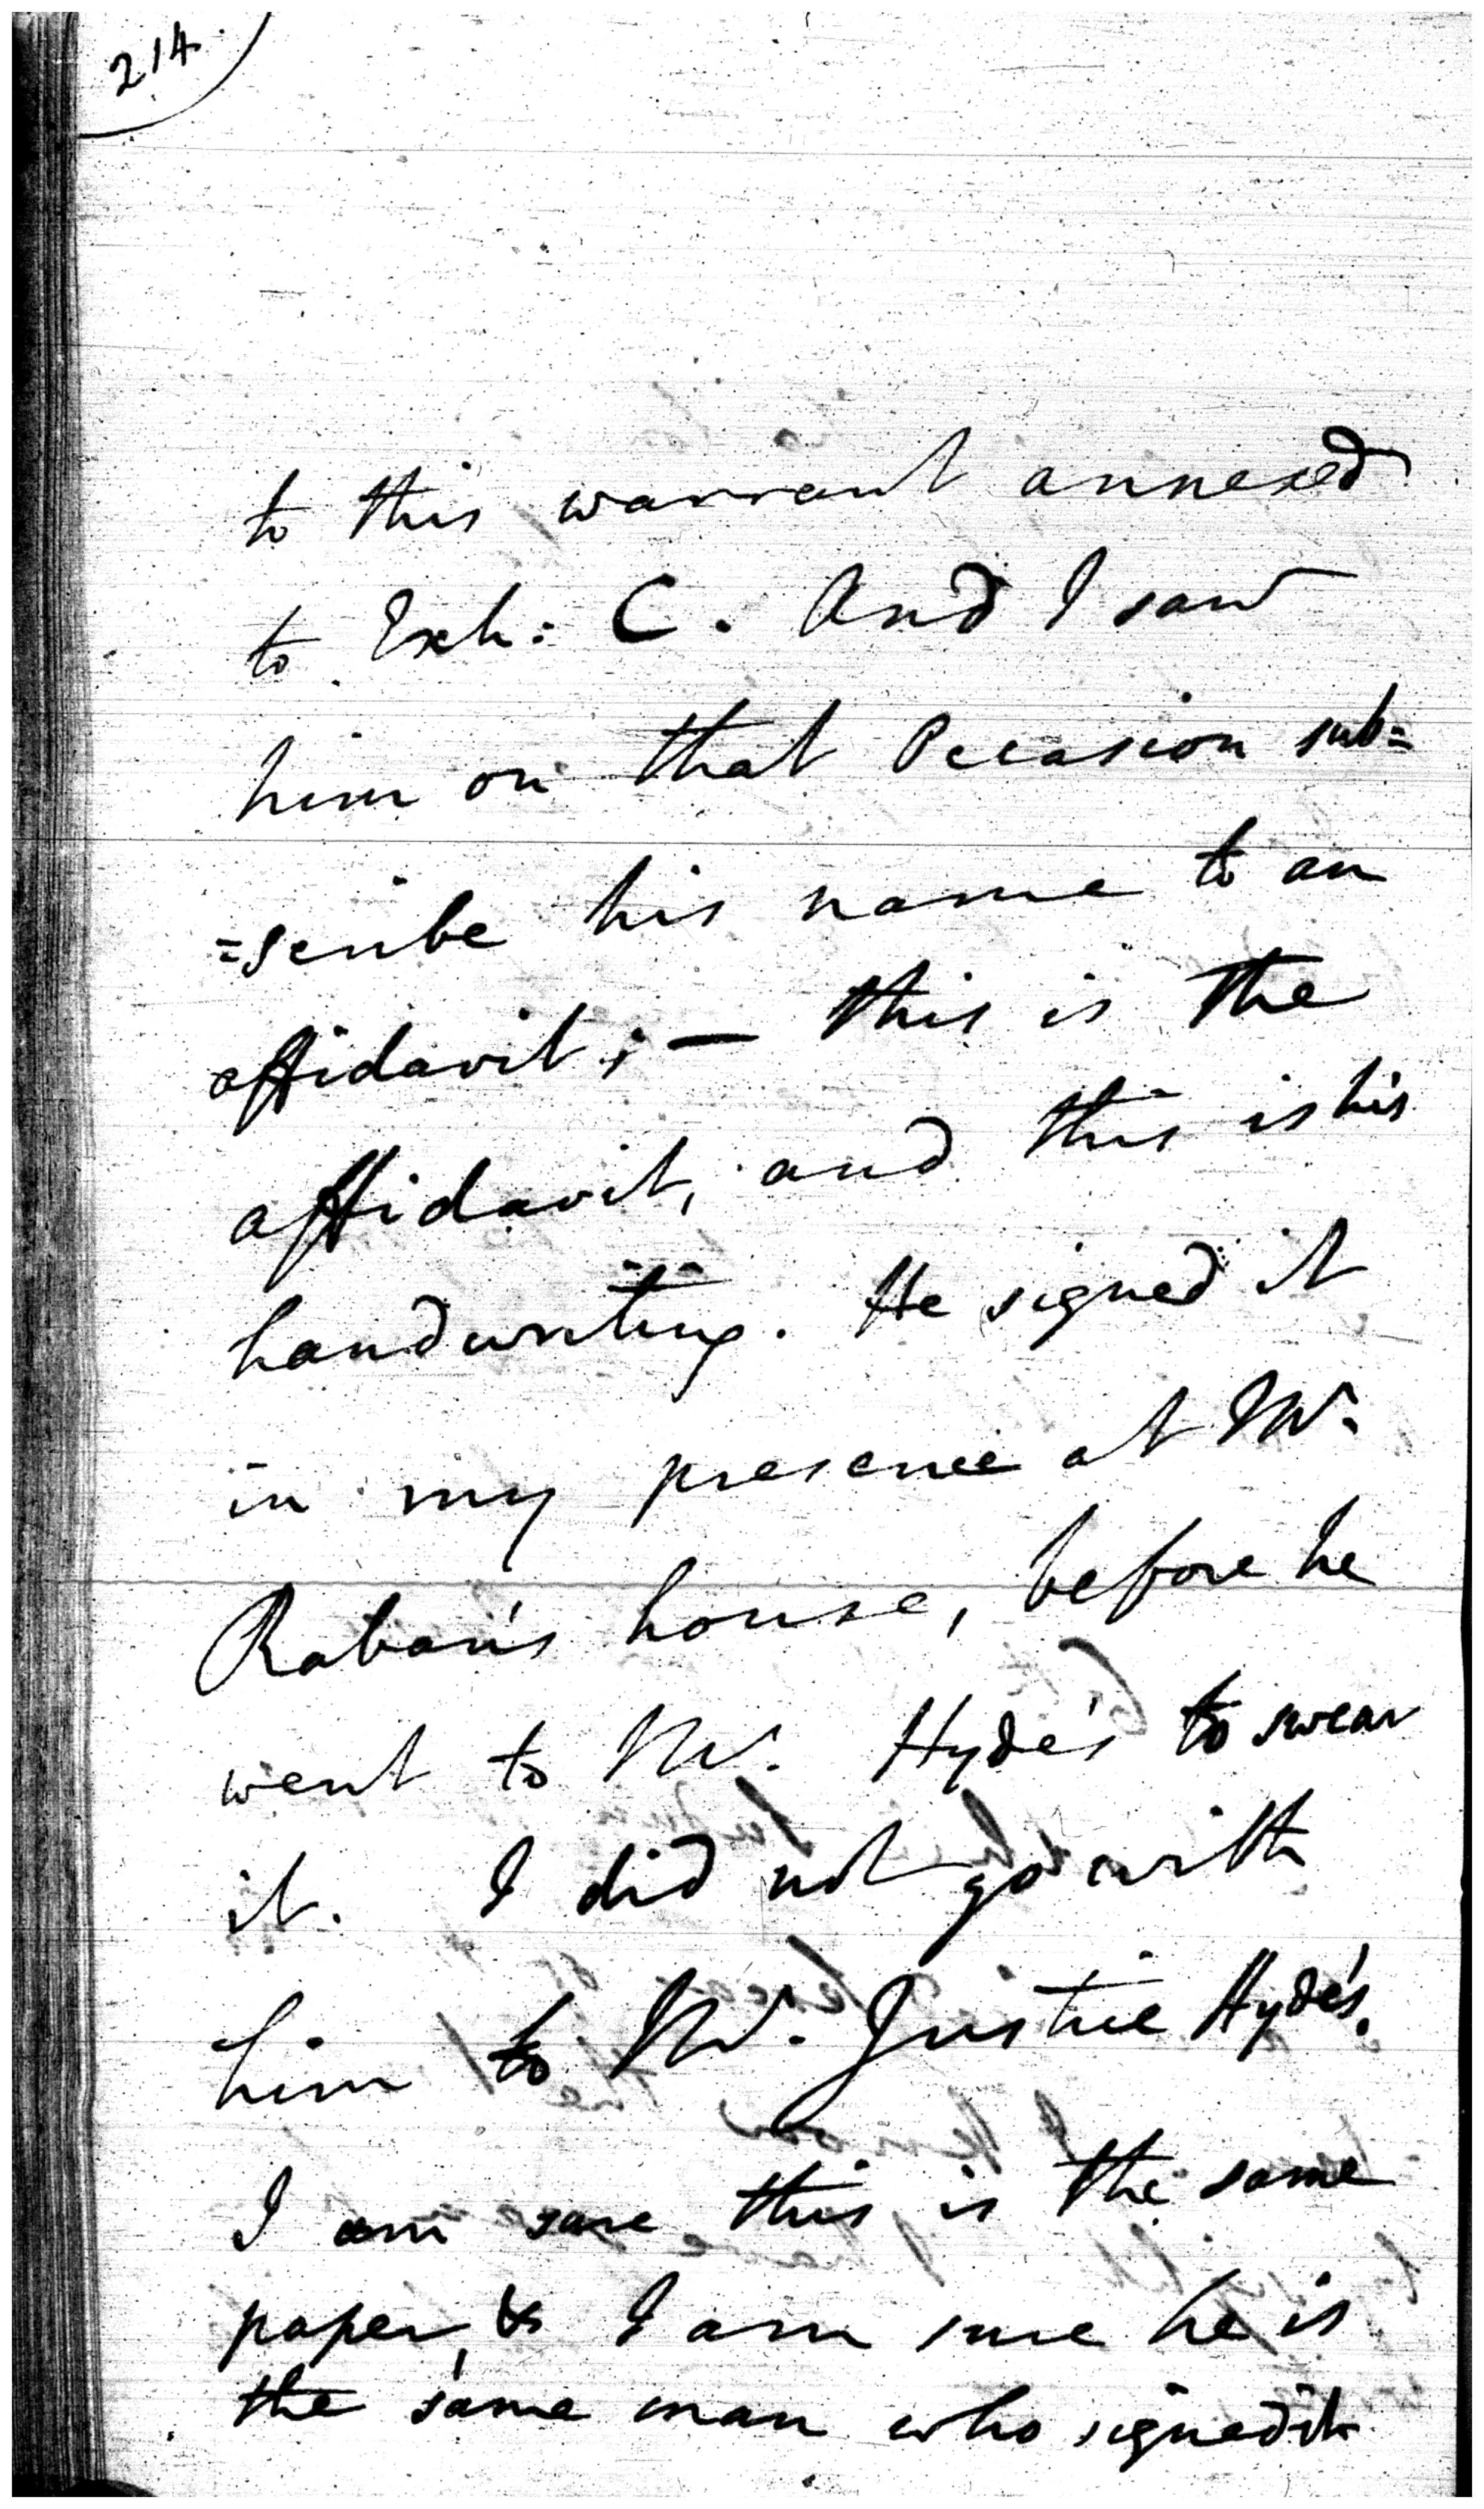 214.
to this warrant annexed
to Exh: C. And I saw
him on that Occasion sub=
=scribe his name to an
affidavit; — this is the
affidavit, and this is his
handwriting. He signed it
in my presence at Mr.
Raban's house, before he
went to Mr. Hyde's to swear
it. I did not go with
him to Mr. Justice Hyde's.
I am sure this is the same
paper, & I am sure he is
the same man who signed it